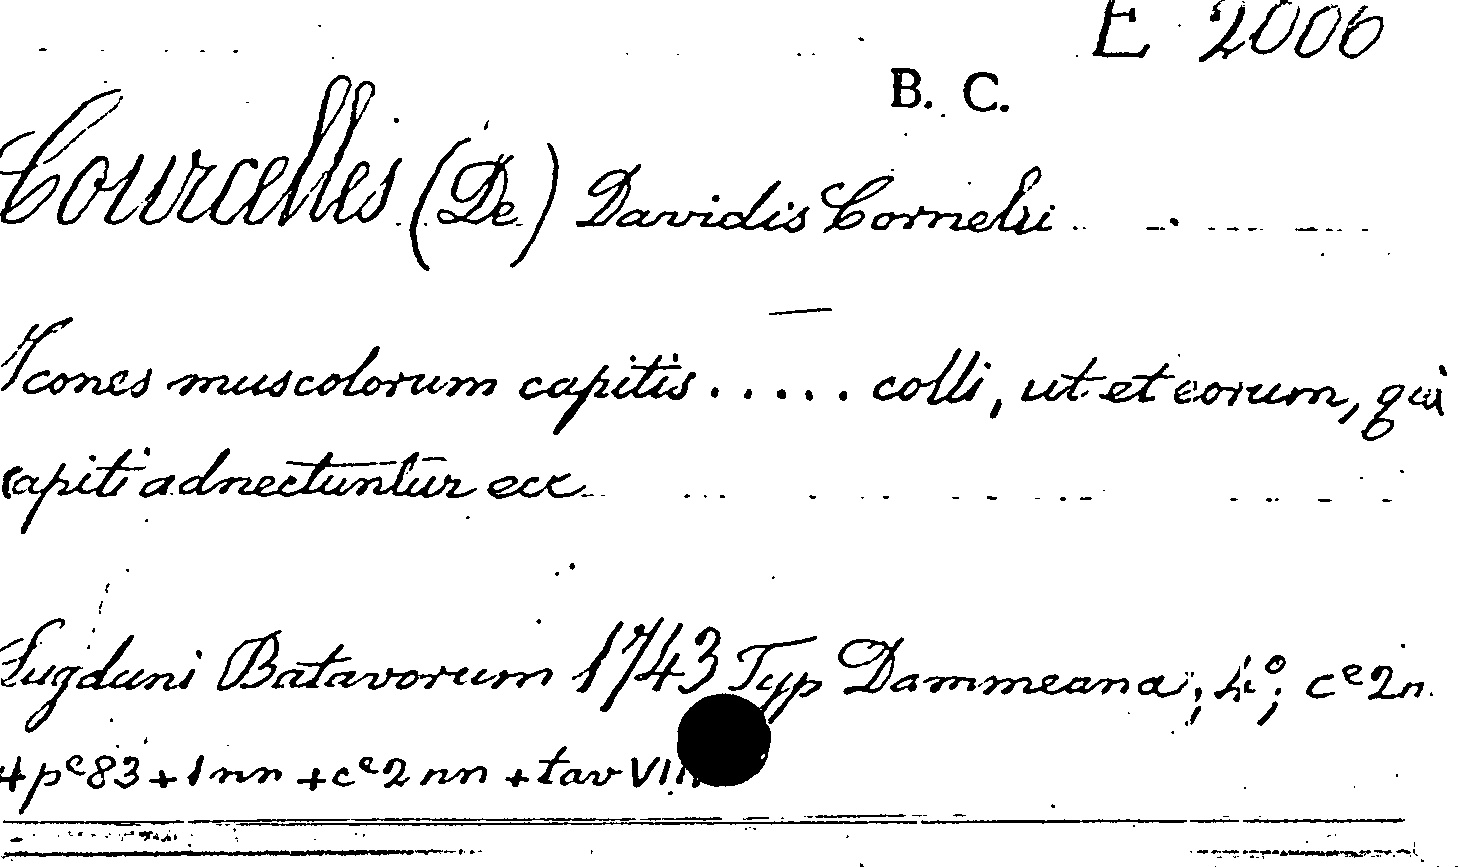 E 2006
B. C.
Courcelles (De) Davidis Cornelii
Icones muscolorum capitis ..... colli, ut et eorum, qui
capiti adnectuntur ecc
Lugduni Batavorum 1743 Typ Dammeana; 4°; cᵉ 2 n.
+ pᵉ 83 + 1 nn + cᵉ 2 nn + tav VIII